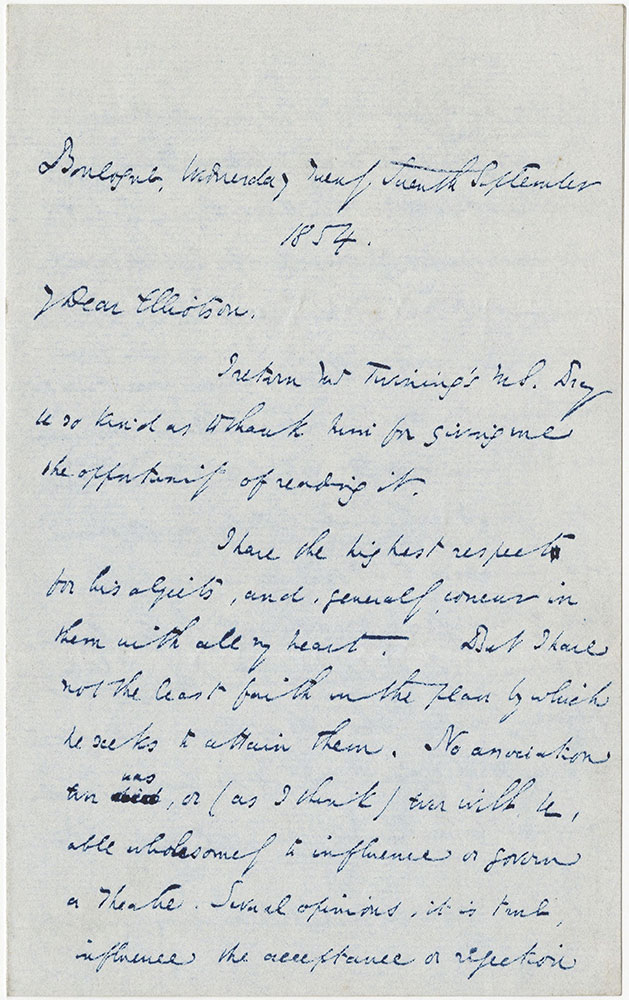 Boulogne, Wednesday Twenty Seventh September
1854.
My Dear Elliotson.
I return Mr Twining's MS. Pray
be so kind as to thank him for giving me
the opportunity of reading it.
I have the highest respect
for his objects, and, generally, concur in
them with all my heart. But I have
not the least faith in the plan by which
he seeks to attain them. No association
ever did was, or (as I think) ever will be,
able wholesomely to influence or govern
a Theatre. Several opinions, it is true,
influence the acceptance or rejection